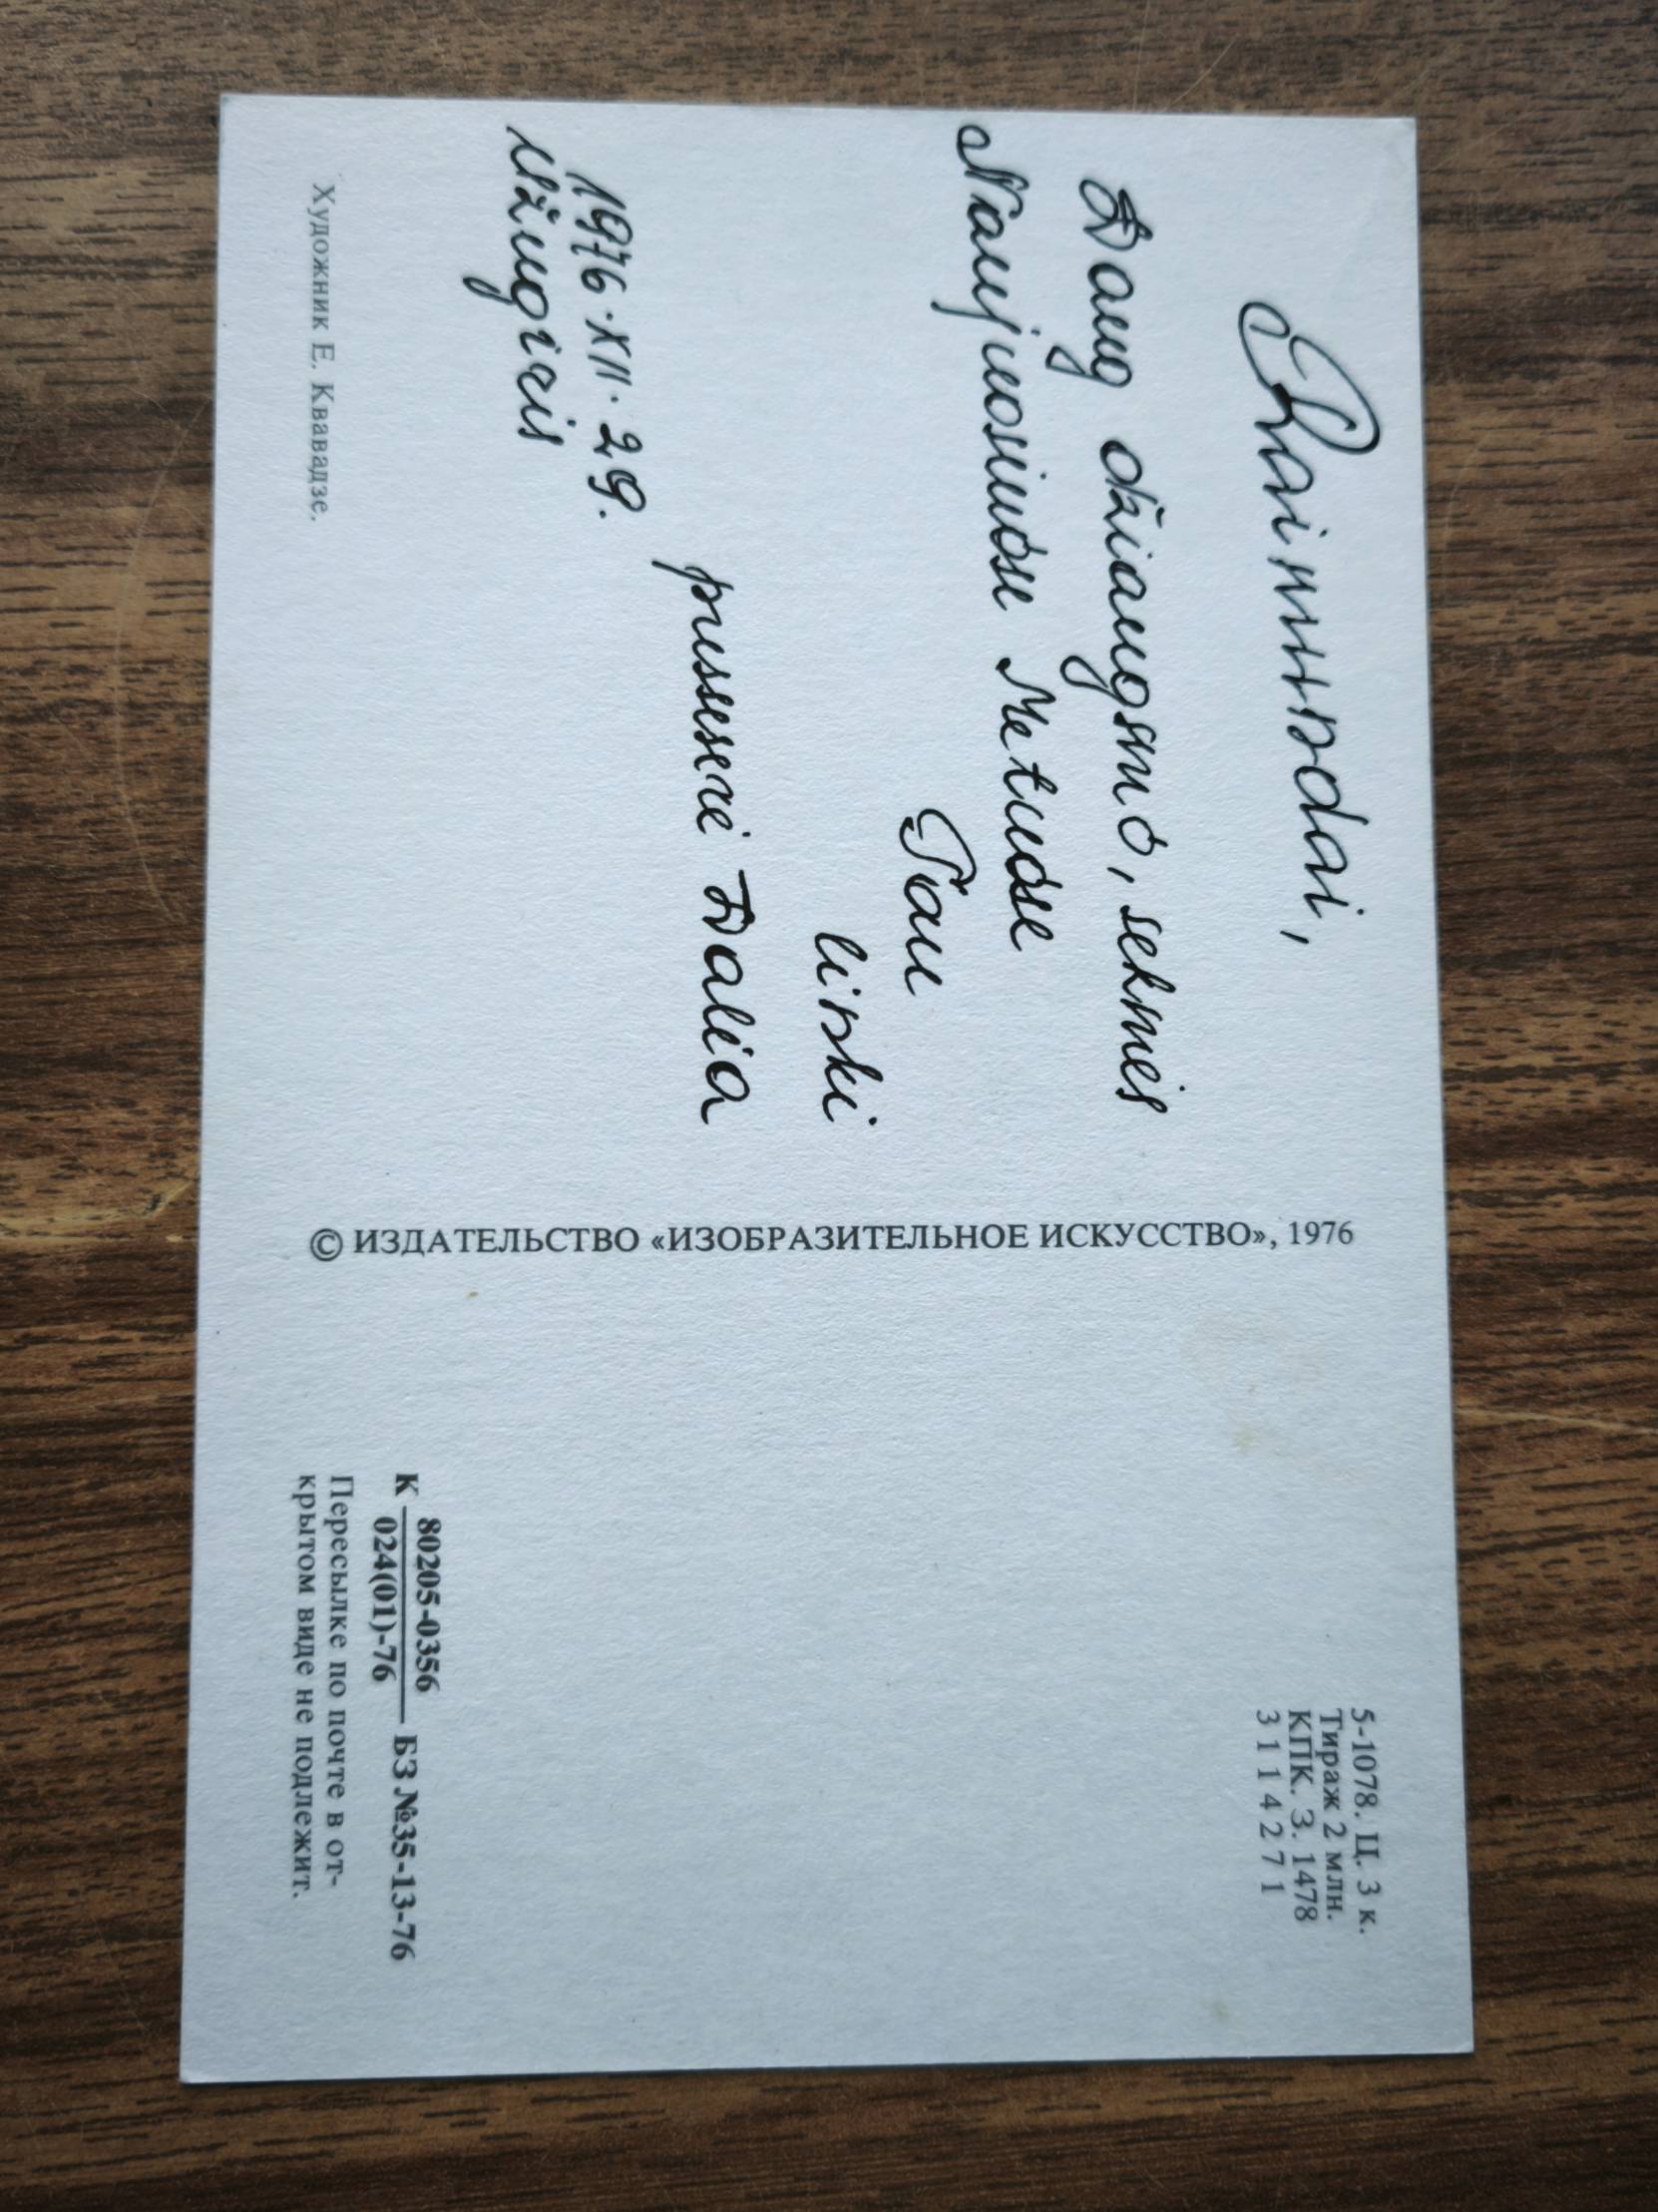 Raimondai,
Daug džiaugsmo, sėkmės
Naujuosiuose Metuose
Tau
linki
pusserė Dalia
1976.XII.29.
Užugiris
Художник Е. Квавадзе.
© ИЗДАТЕЛЬСТВО «ИЗОБРАЗИТЕЛЬНОЕ ИСКУССТВО», 1976
5-1078. Ц. 3 к.
Тираж 2 млн.
КПК. З. 1478
3 1 1 4 2 7 1
К 80205-0356 БЗ №35-13-76
024(01)-76
Пересылке по почте в от-
крытом виде не подлежит.